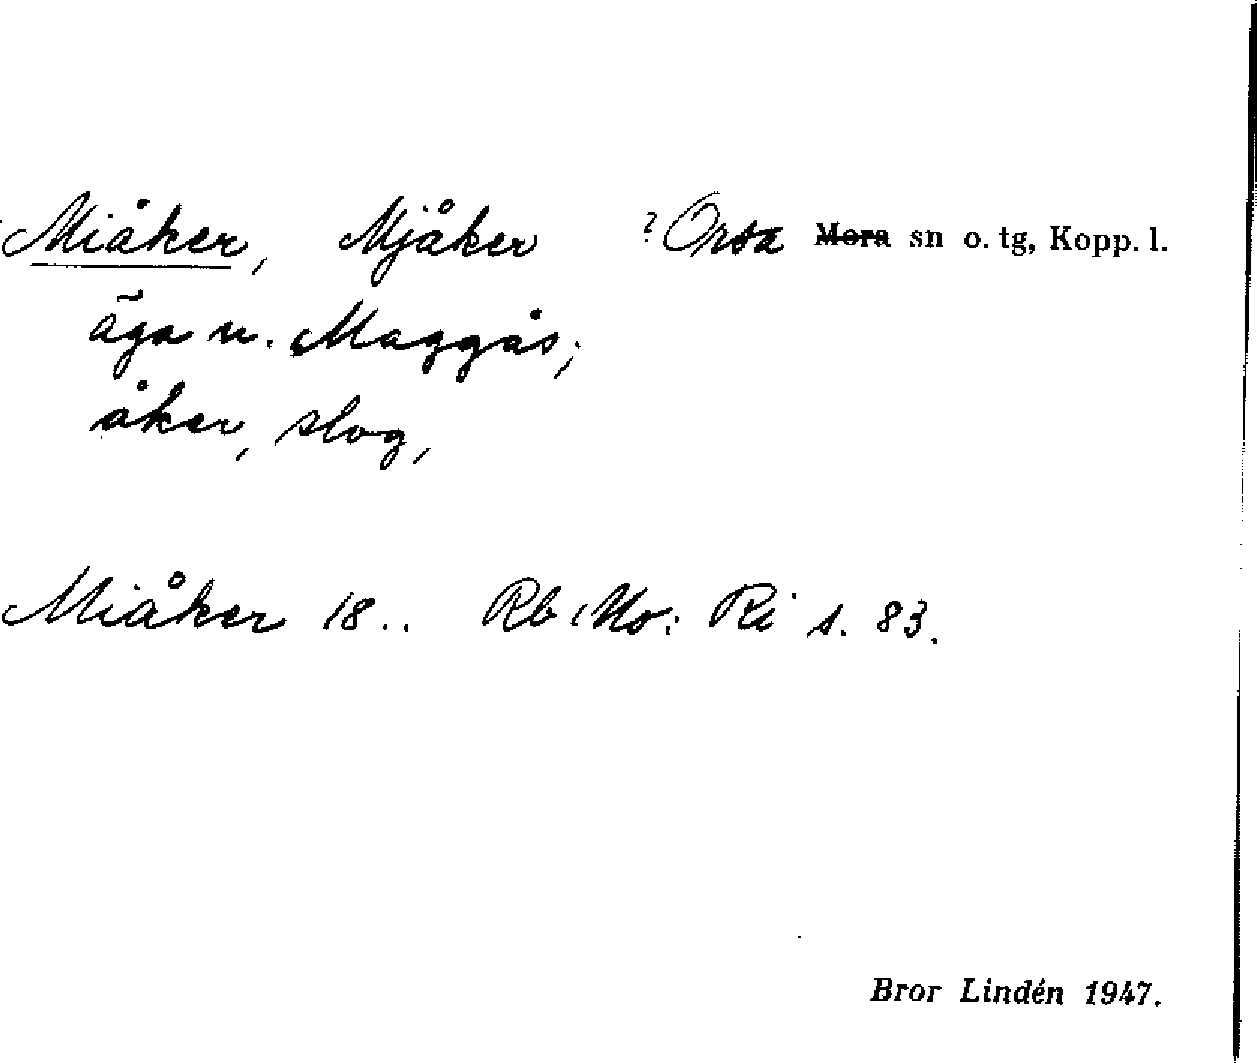 Miåker, Mjåker ? Orsa Mora sn o. tg, Kopp. l.
äga n. Maggås;
åker, slog,
Miåker 18.. Rb Mo: Ri s. 83.
Bror Lindén 1947.